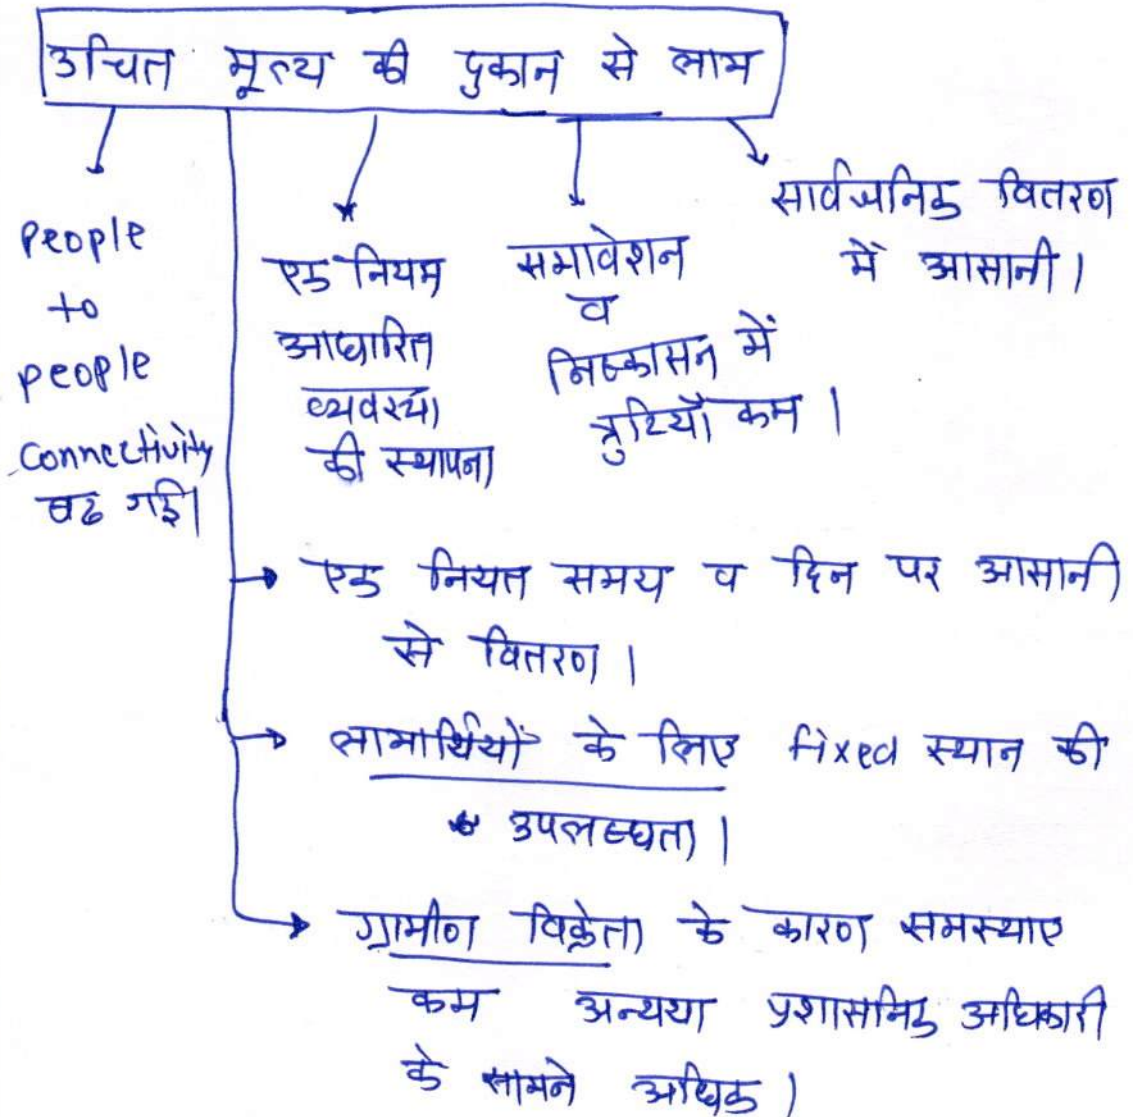 उचित मूल्य की दुकान से लाभ
People
to
people
connectivity
बढ गई।
एक नियम
आधारित
व्यवस्था
की स्थापना
समावेशन
व
निष्कासन में
त्रुटियाँ कम।
सार्वजनिक वितरण
में आसानी।
एक नियत समय व दिन पर आसानी
से वितरण।
लाभार्थियों के लिए fixed स्थान की
उपलब्धता।
ग्रामीण विक्रेता के कारण समस्याए
कम अन्यथा प्रशासनिक अधिकारी
के सामने अधिक।